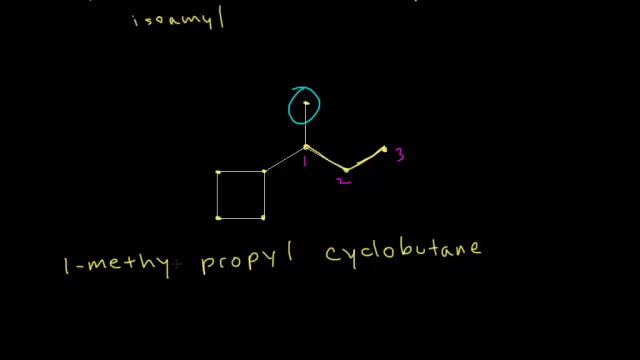 isoamyl
1 2 3
1-methy propyl cyclobutane